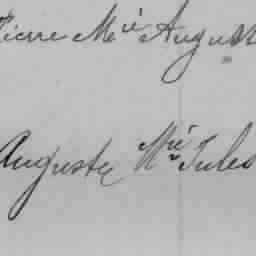 Pierre Mie August
Auguste Mie Jules